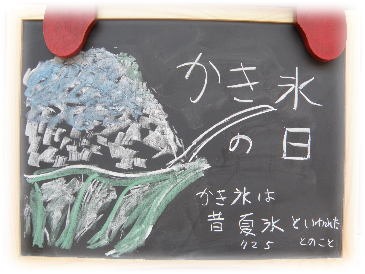 かき氷
の日
かき氷は
昔 夏氷 といわれた
7/25 とのこと